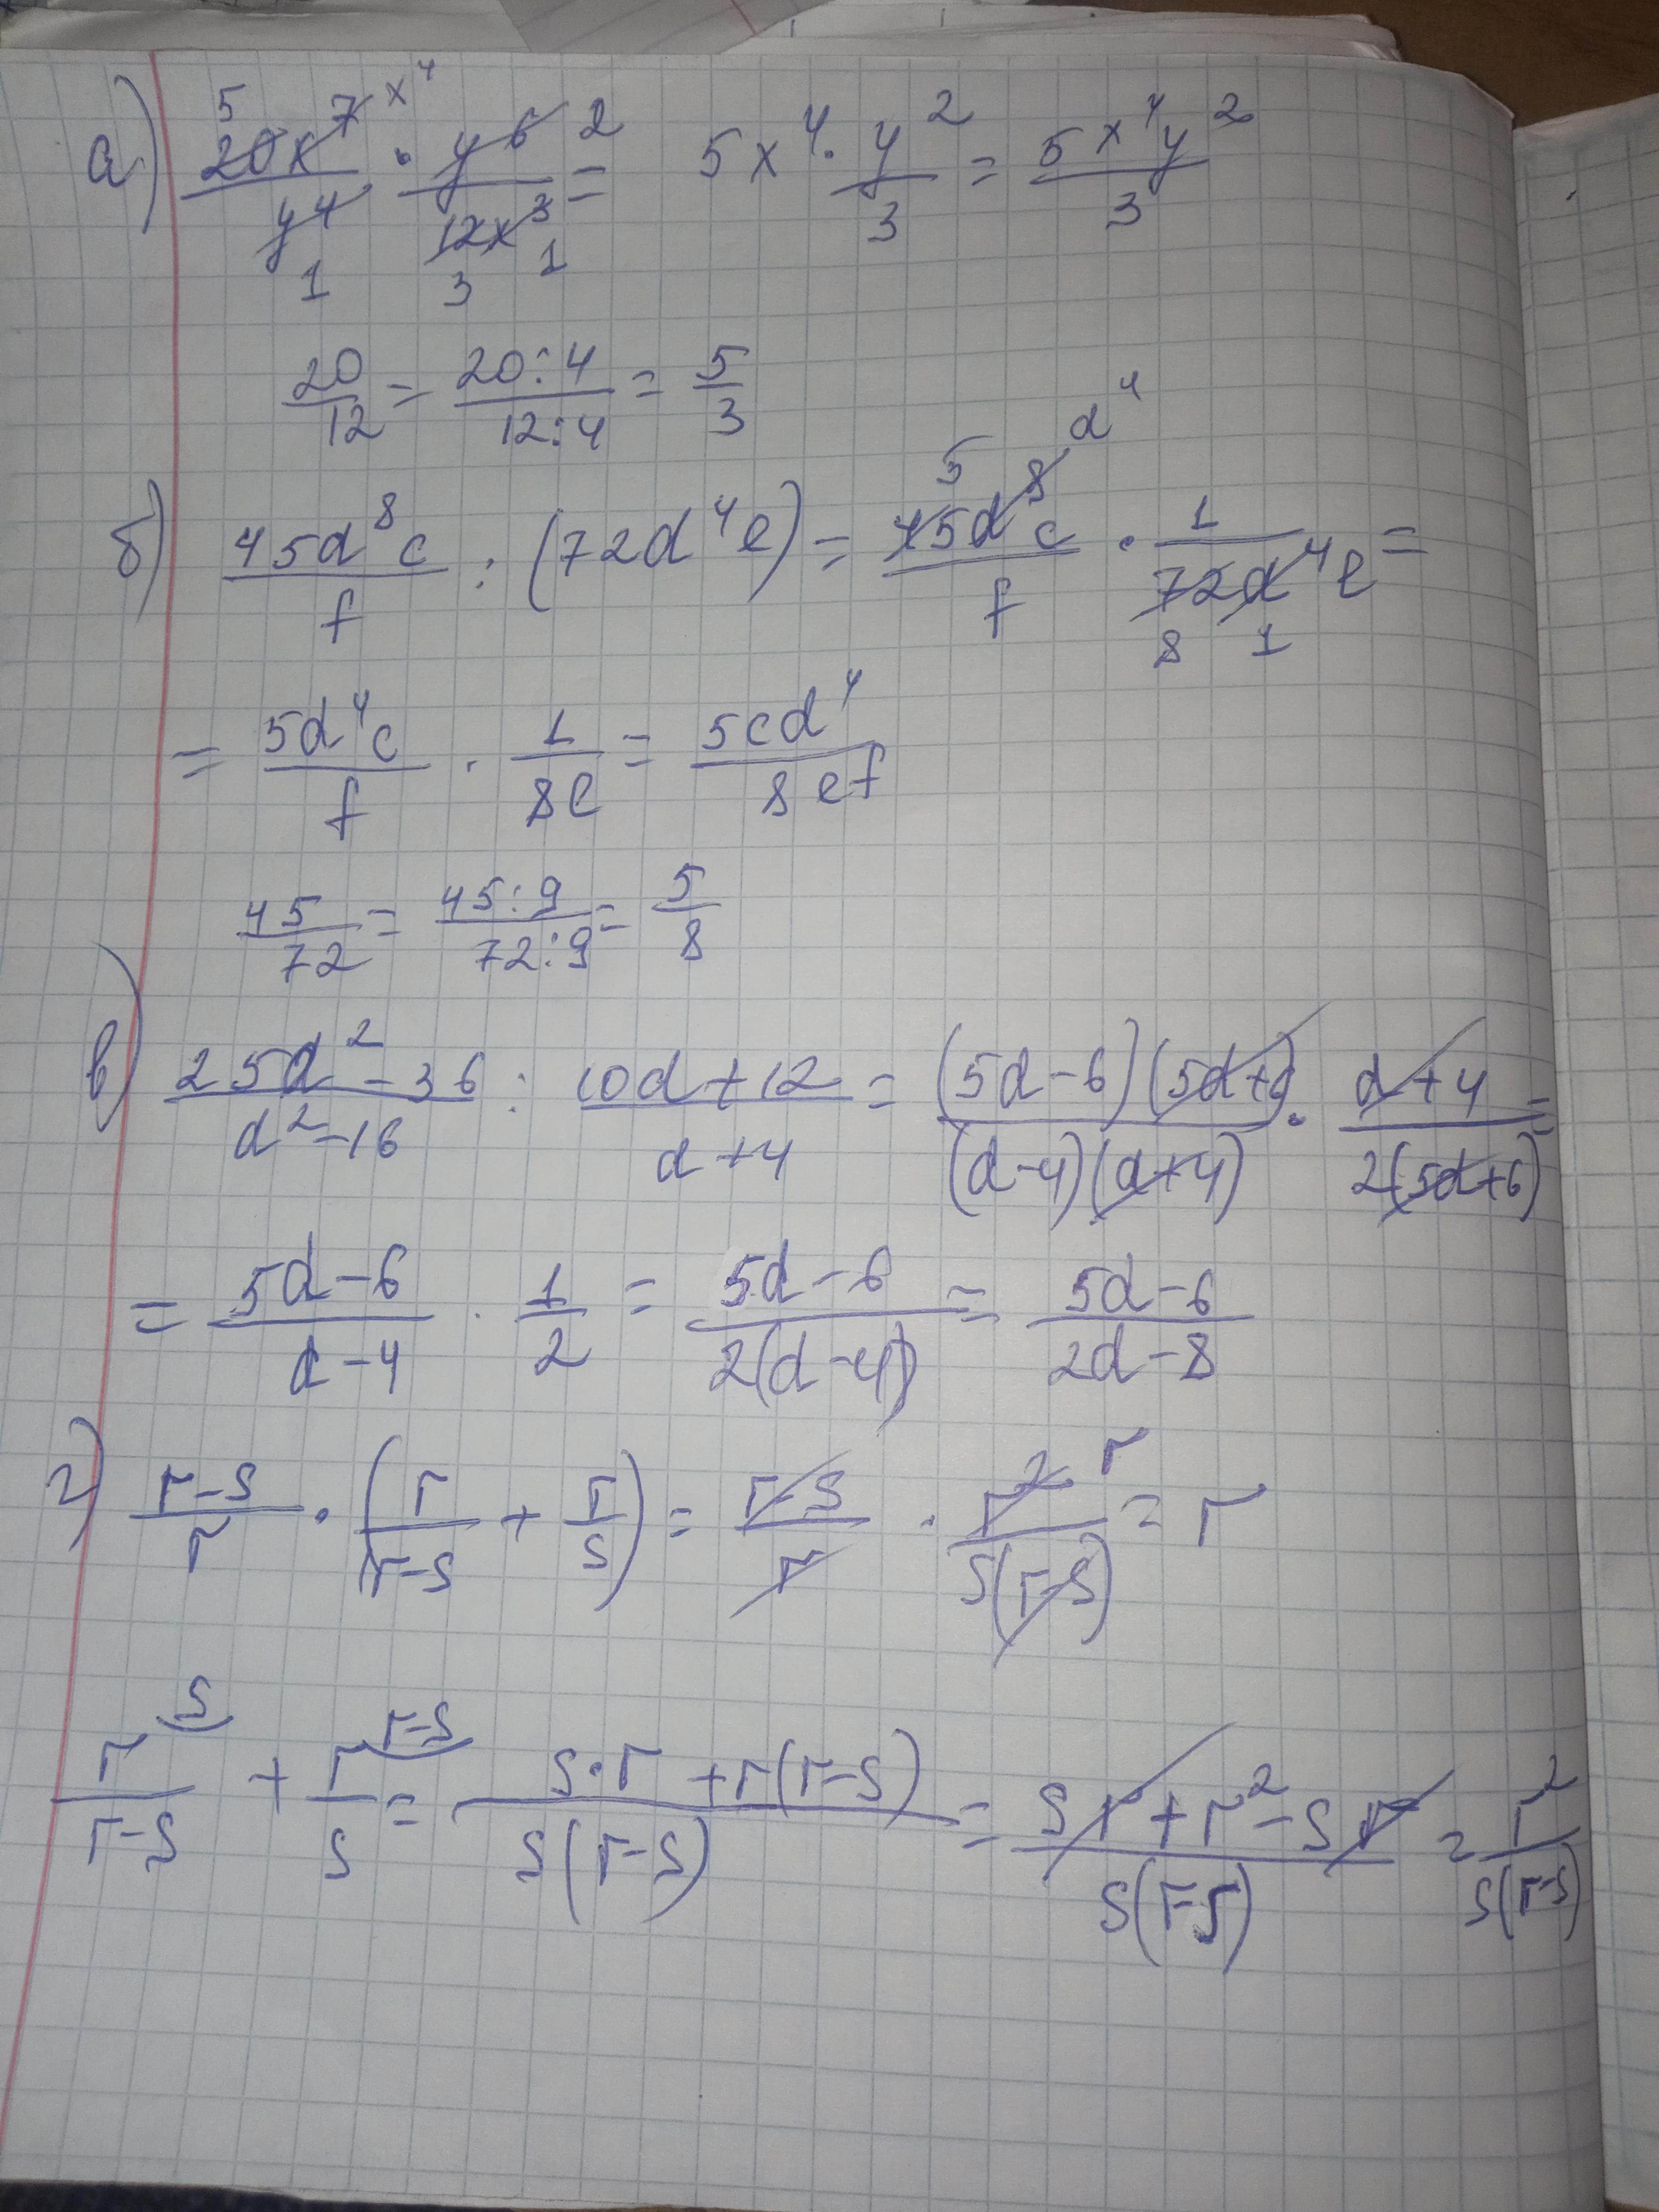 а) 20x⁷/y⁴ · y⁶/12x³ = 5x⁴ · y²/3 = 5x⁴y²/3
5 x⁴ 2
1 3 1
20/12 = 20:4/12:4 = 5/3
б) 45d⁸c/f : (72d⁴e) = 45d⁸c/f · 1/72d⁴e =
5 d⁴
8 1
= 5d⁴c/f · 1/8e = 5cd⁴/8ef
45/72 = 45:9/72:9 = 5/8
в) 25d²-36/d²-16 : 10d+12/d+4 = (5d-6)(5d+6)/(d-4)(d+4) · d+4/2(5d+6) =
= 5d-6/d-4 · 1/2 = 5d-6/2(d-4) = 5d-6/2d-8
г) r-s/r · (r/r-s + r/s) = r-s/r · r²/s(r-s) = r
r
s r-s
r/r-s + r/s = s·r+r(r-s)/s(r-s) = sr+r²-sr/s(r-s) = r²/s(r-s)